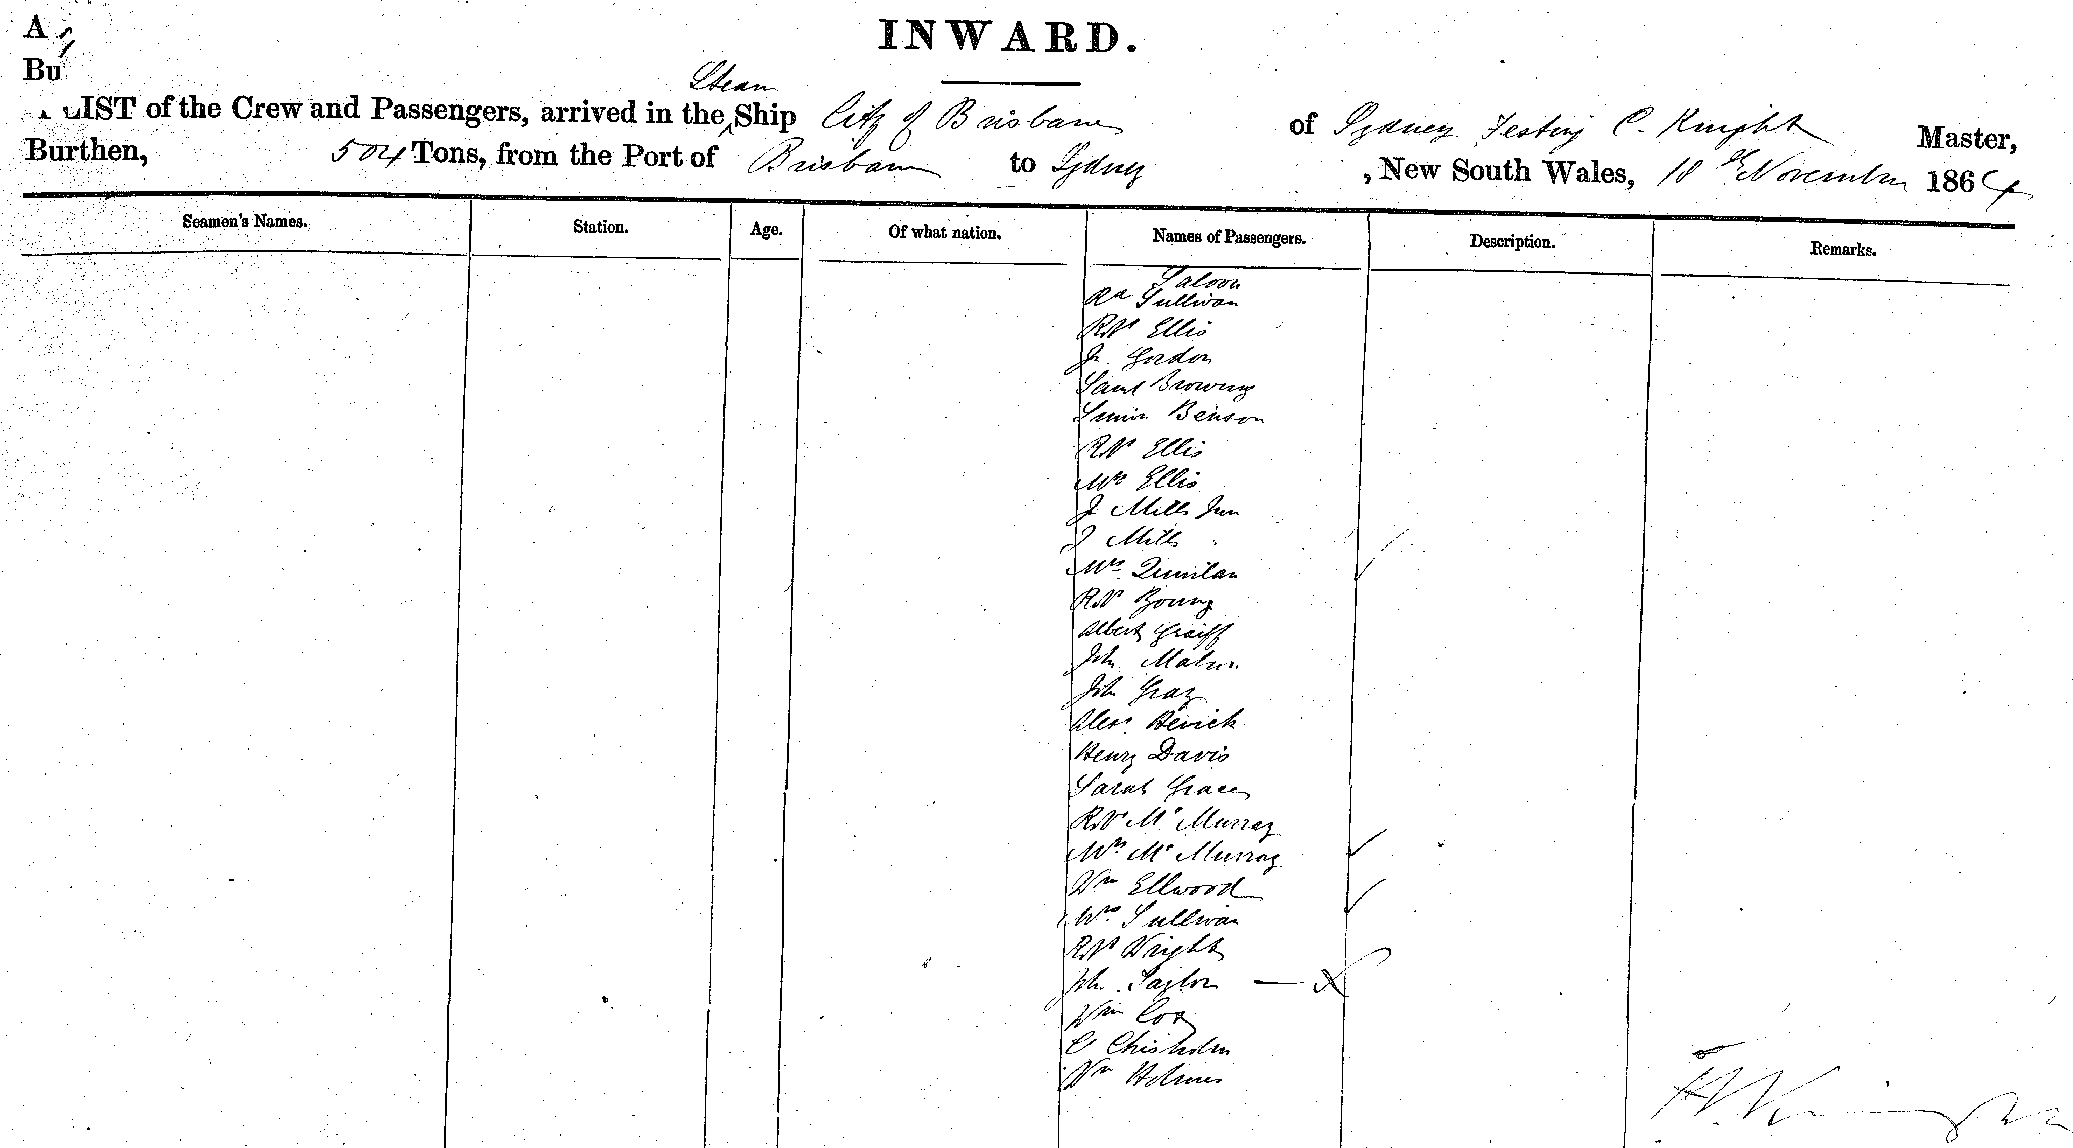 A
Bu
INWARD.
Steam
A LIST of the Crew and Passengers, arrived in the Ship City of Brisbane of Sydney Knight Master,
Burthen, 504 Tons, from the Port of Brisbane to Sydney , New South Wales, 10th November 1864
Seamen's Names. Station. Age. Of what nation. Names of Passengers. Description. Remarks.
Saloon
Sullivan
Robt Ellis
Gordon
Saml Browning
Benson
Robt Ellis
Ellis
J Mills Jun
J Mills
Mrs Quinlan
Robt Young
Albert
John
John Gray
Alexr
Henry Davis
Sarah Graces
Robt Mc Murray
Mrs Mc Murray
Wm Ellwood
Mrs Sullivan
Robt Wright
John Taylor — X
Wm Cox
C Chisholm
Wm Holmes